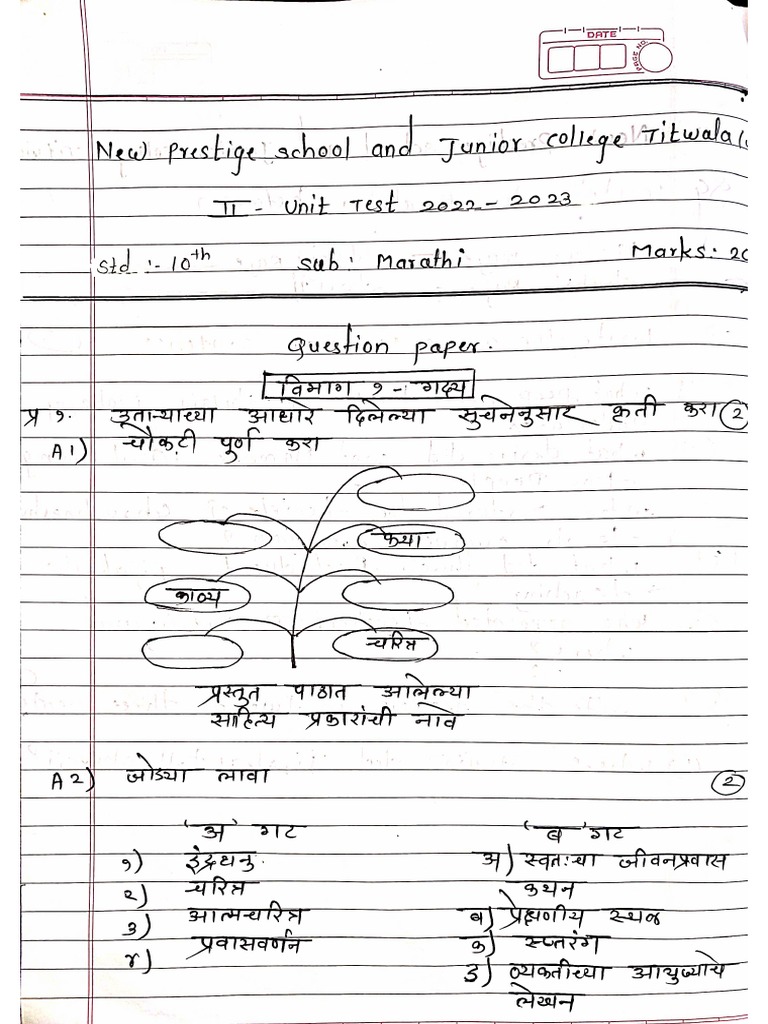 DATE
PAGE NO.
New Prestige school and Junior college Titwala
II - Unit Test 2022-2023
Std :- 10th Sub: Marathi Marks: 20
Question paper.
विभाग १ - गद्य
प्र १. उताऱ्याच्या आधारे दिलेल्या सुचनेनुसार कृती करा (2)
A1) चौकटी पुर्ण करा
कथा
काव्य
चरित्र
प्रस्तुत पाठात आलेल्या
साहित्य प्रकारांची नावे
A2) जोड्या लावा (2)
'अ' गट 'ब' गट
१) इंद्रधनु. अ) स्वतःचा जीवनप्रवास
कथन
२) चरित्र
३) आत्मचरित्र ब) प्रेक्षणीय स्थळ
४) प्रवासवर्णन क) सप्तरंग
ड) व्यक्तीच्या आयुष्याचे
लेखन